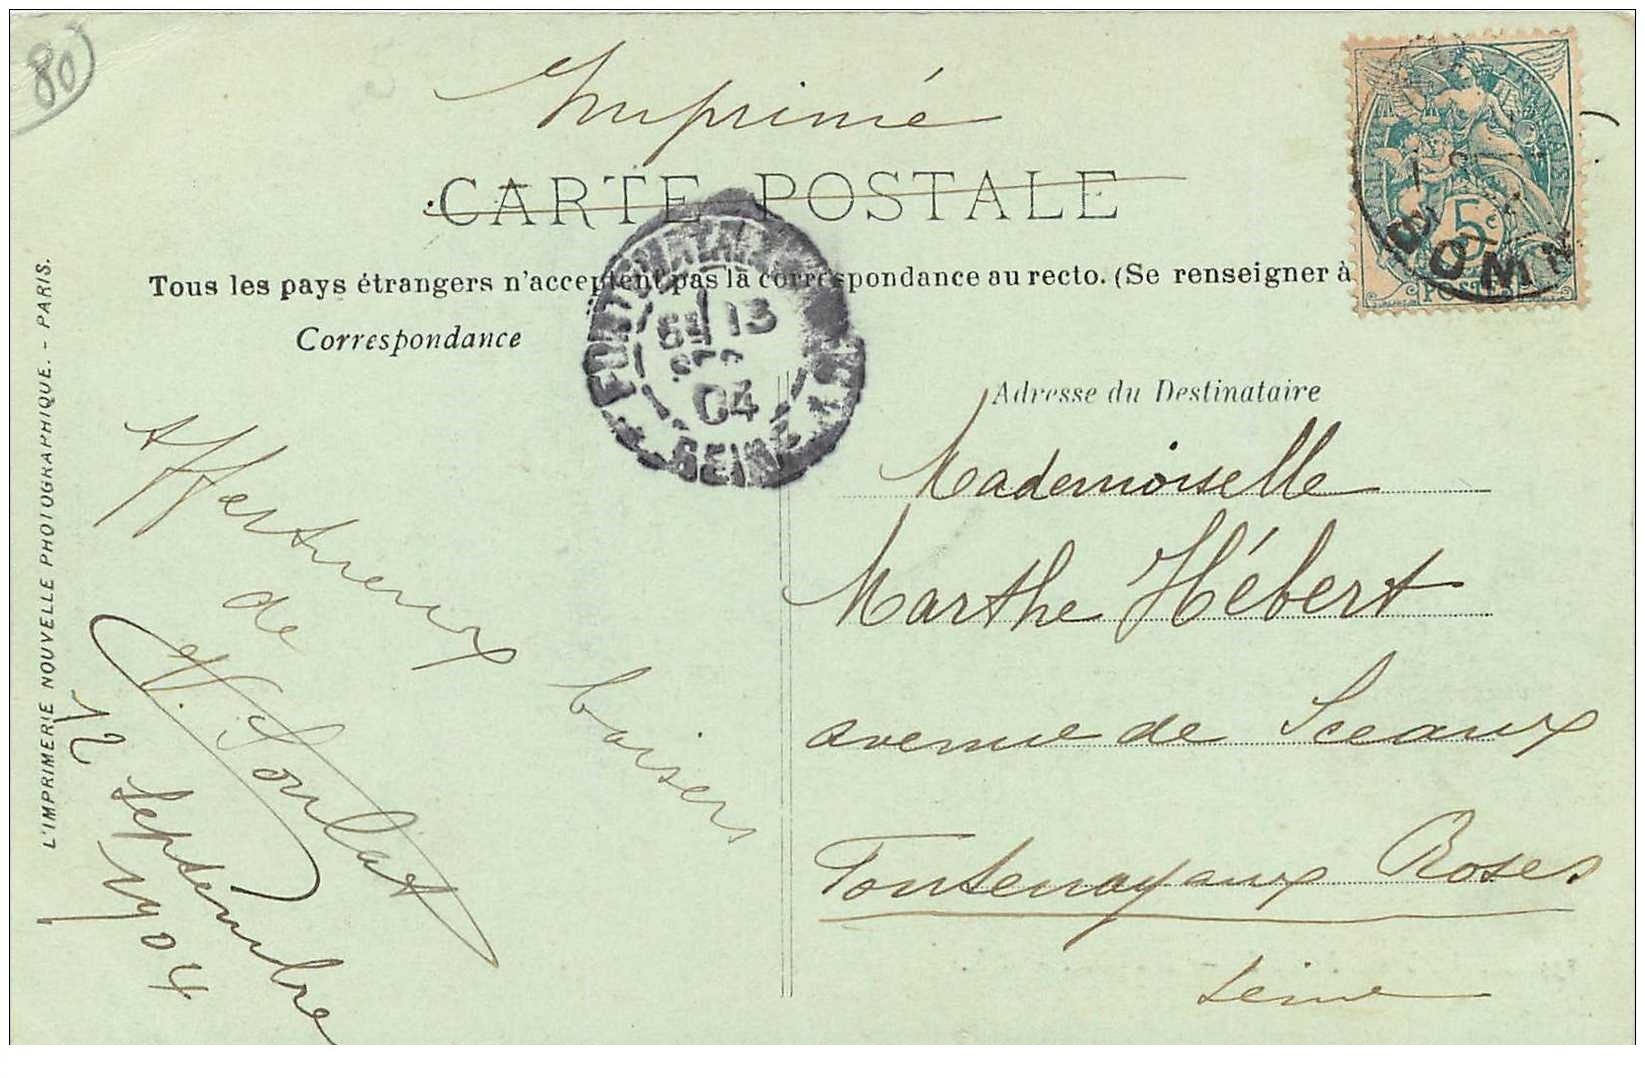 80
Imprimé
CARTE POSTALE
Tous les pays étrangers n'acceptent pas la correspondance au recto. (Se renseigner à
Correspondance
Adresse du Destinataire
13
04
SEINE
5c
POSTES
SOMME
Mademoiselle
Marthe Hébert
avenue de Sceaux
Fontenay aux Roses
Seine
Affectueux baisers
de
Soulat
12 Septembre
1904
L'IMPRIMERIE NOUVELLE PHOTOGRAPHIQUE. - PARIS.